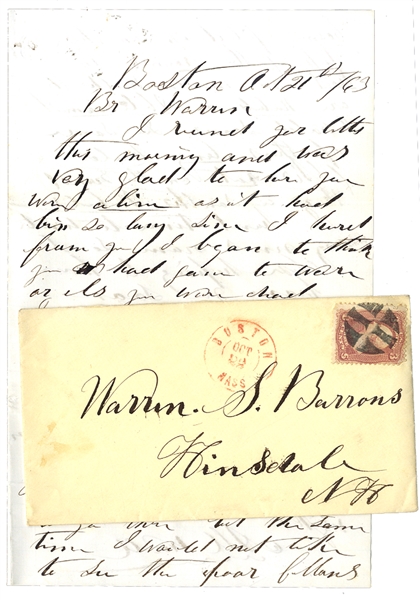 Boston Oct 21st/63
Br Warrin
I reund your letter
this morning and was
very glad to her you
wor alive as it had
bin so long sinc I hurd
from you I began to think
you had gorn to worre
or els you wore dead
BOSTON
OCT
MASS
3 3
Warren. S. Barrons
Hinsdale
N H
but the same
time I would not like
to see the poor fellows